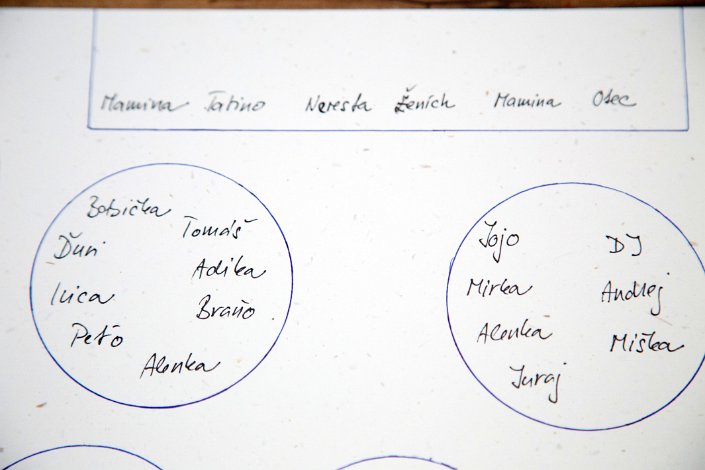 Mamina Tatino Nevesta Ženích Mamina Otec
Babička
Tomáš
Ďuri
Adika
Ivica
Braňo
Peťo
Alenka
Jojo
DJ
Mirka
Andrej
Alenka
Miška
Juraj